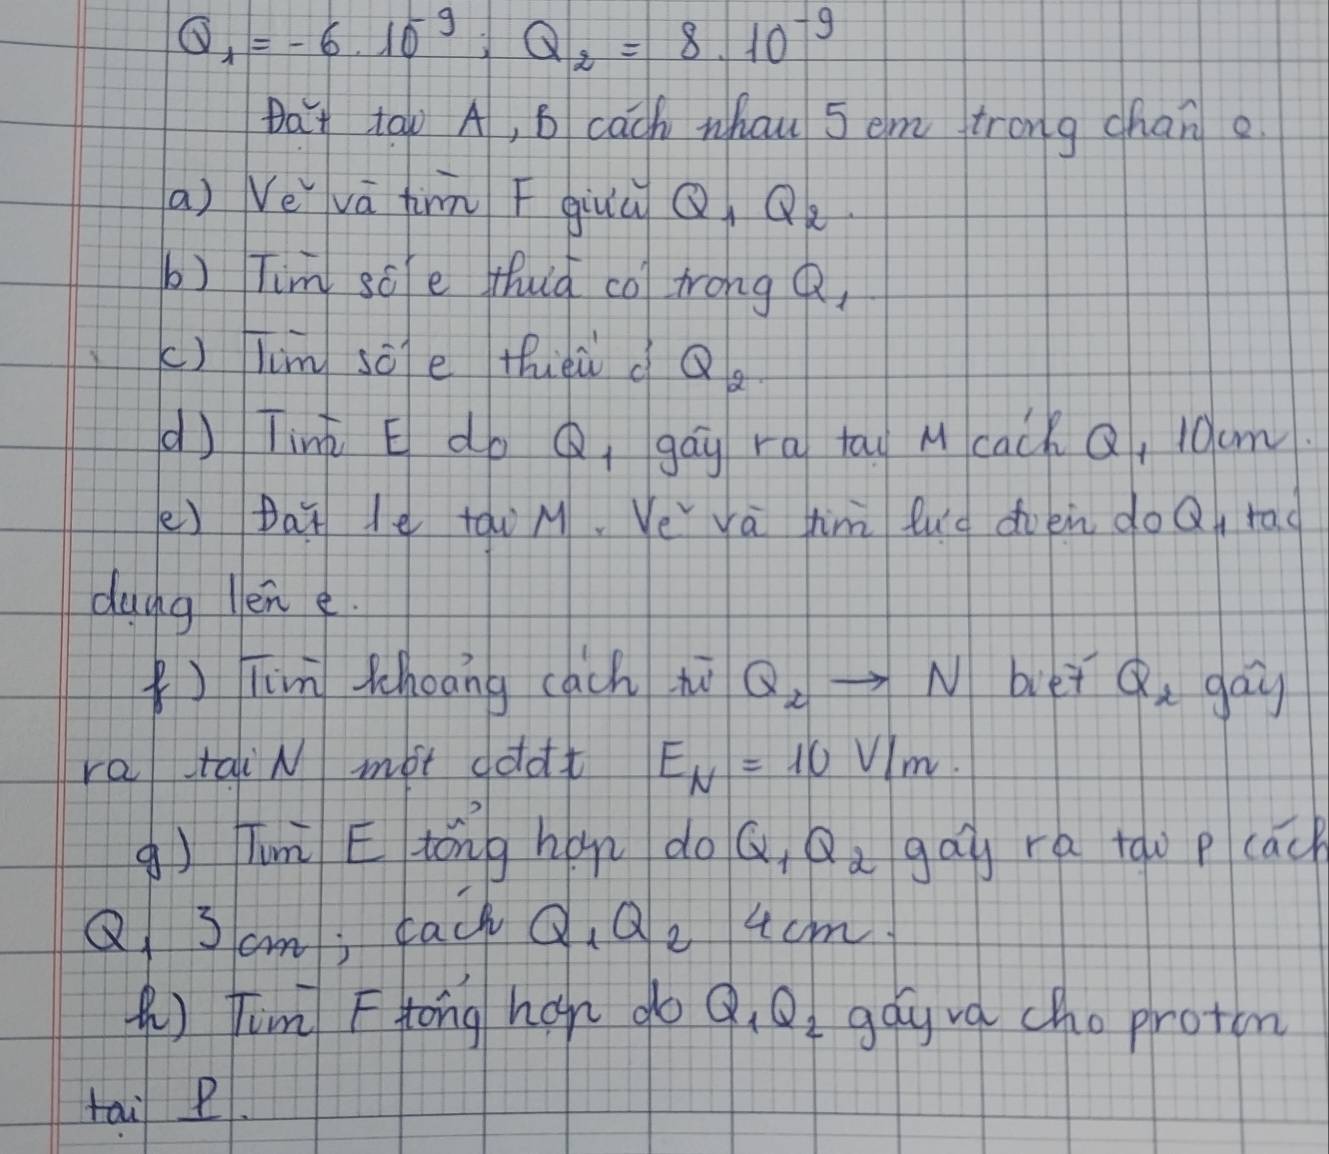 Q₁ = - 6 . 10⁻⁹ ; Q₂ = 8 . 10⁻⁹
Đặt tại A, B cách nhau 5 cm trong chân o.
a) Vẽ và tìm F giữa Q₁ Q₂.
b) Tìm số e thừa có trong Q₁
c) Tìm số e thiếu ở Q₂.
d) Tìm E do Q₁ gây ra tại M cách Q₁ 10cm.
e) Đặt 1e tại M. Vẽ và tìm lực điện do Q₁ tác
dụng lên e.
f) Tìm khoảng cách từ Q₂ → N biết Q₂ gây
ra tại N một cđđt E_N = 10 V/m.
g) Tìm E tổng hợp do Q₁ Q₂ gây ra tại P cách
Q₁ 3 cm ; cách Q₁Q₂ 4cm.
h) Tìm F tổng hợp do Q₁Q₂ gây ra cho proton
tại P.